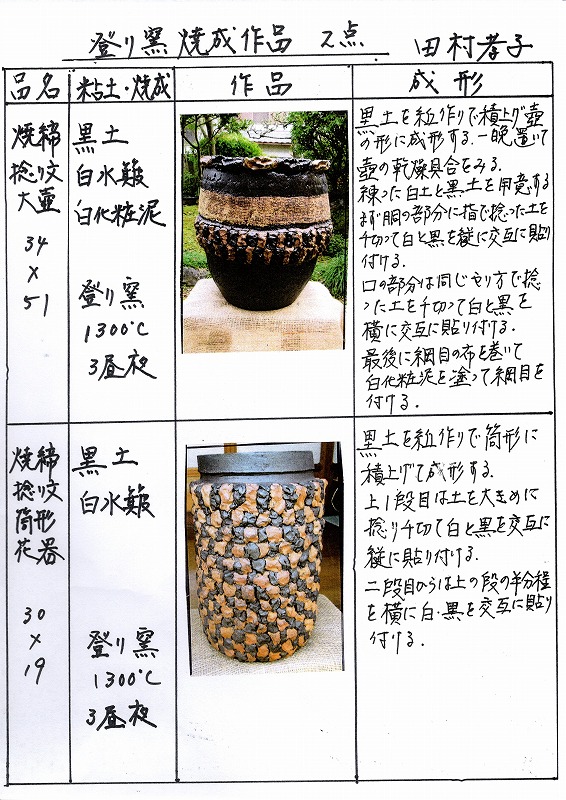 登り窯焼成作品 2点 田村孝子
品名
粘土・焼成
作品
成形
焼締
捻り文
大壷
34
×
51
黒土
白水簸
白化粧泥
登り窯
1300℃
3昼夜
黒土を紐作りで積上げ壷
の形に成形する。一晩置いて
壷の乾燥具合をみる。
練った白土と黒土を用意する
まず胴の部分に指で捻った土を
千切って白と黒を縦に交互に貼り
付ける。
口の部分は同じやり方で捻
った土を千切って白と黒を
横に交互に貼り付ける。
最後に網目の布を巻いて
白化粧泥を塗って網目を
付ける。
焼締
捻り文
筒形
花器
30
×
19
黒土
白水簸
登り窯
1300℃
3昼夜
黒土を紐作りで筒形に
積上げて成形する。
上1段目は土を大きめに
捻り千切って白と黒を交互に
縦に貼り付ける。
二段目からは上の段の半分程
を横に白・黒を交互に貼り
付ける。